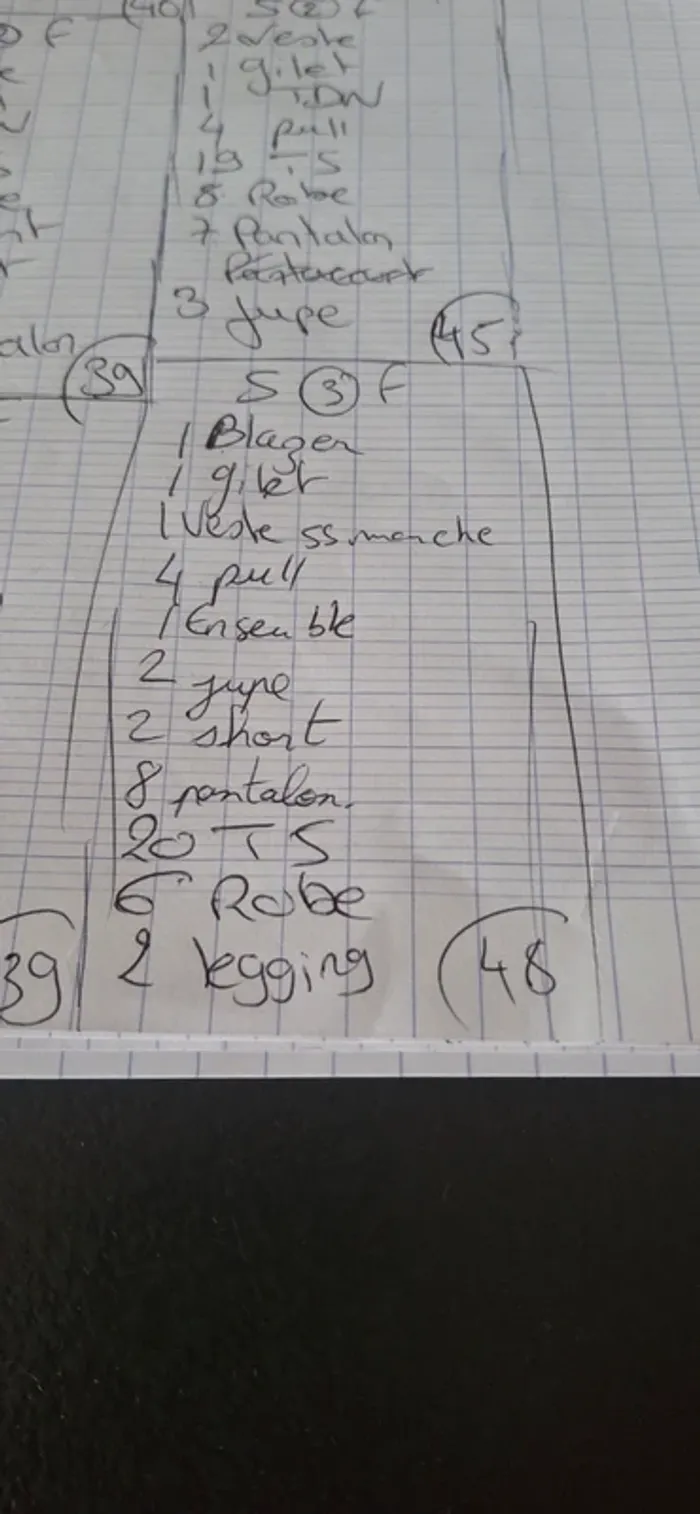 40
S ② F
2 veste
1 gilet
1 TDN
4 pull
19 TS
8 Robe
7 Pantalon
Pantacourt
3 jupe
45
alon
39
S ③ F
1 Blazer
1 gilet
1 Veste ss manche
4 pull
1 Ensemble
2 jupe
2 short
8 pantalon.
20 TS
6 Robe
2 legging
48
39